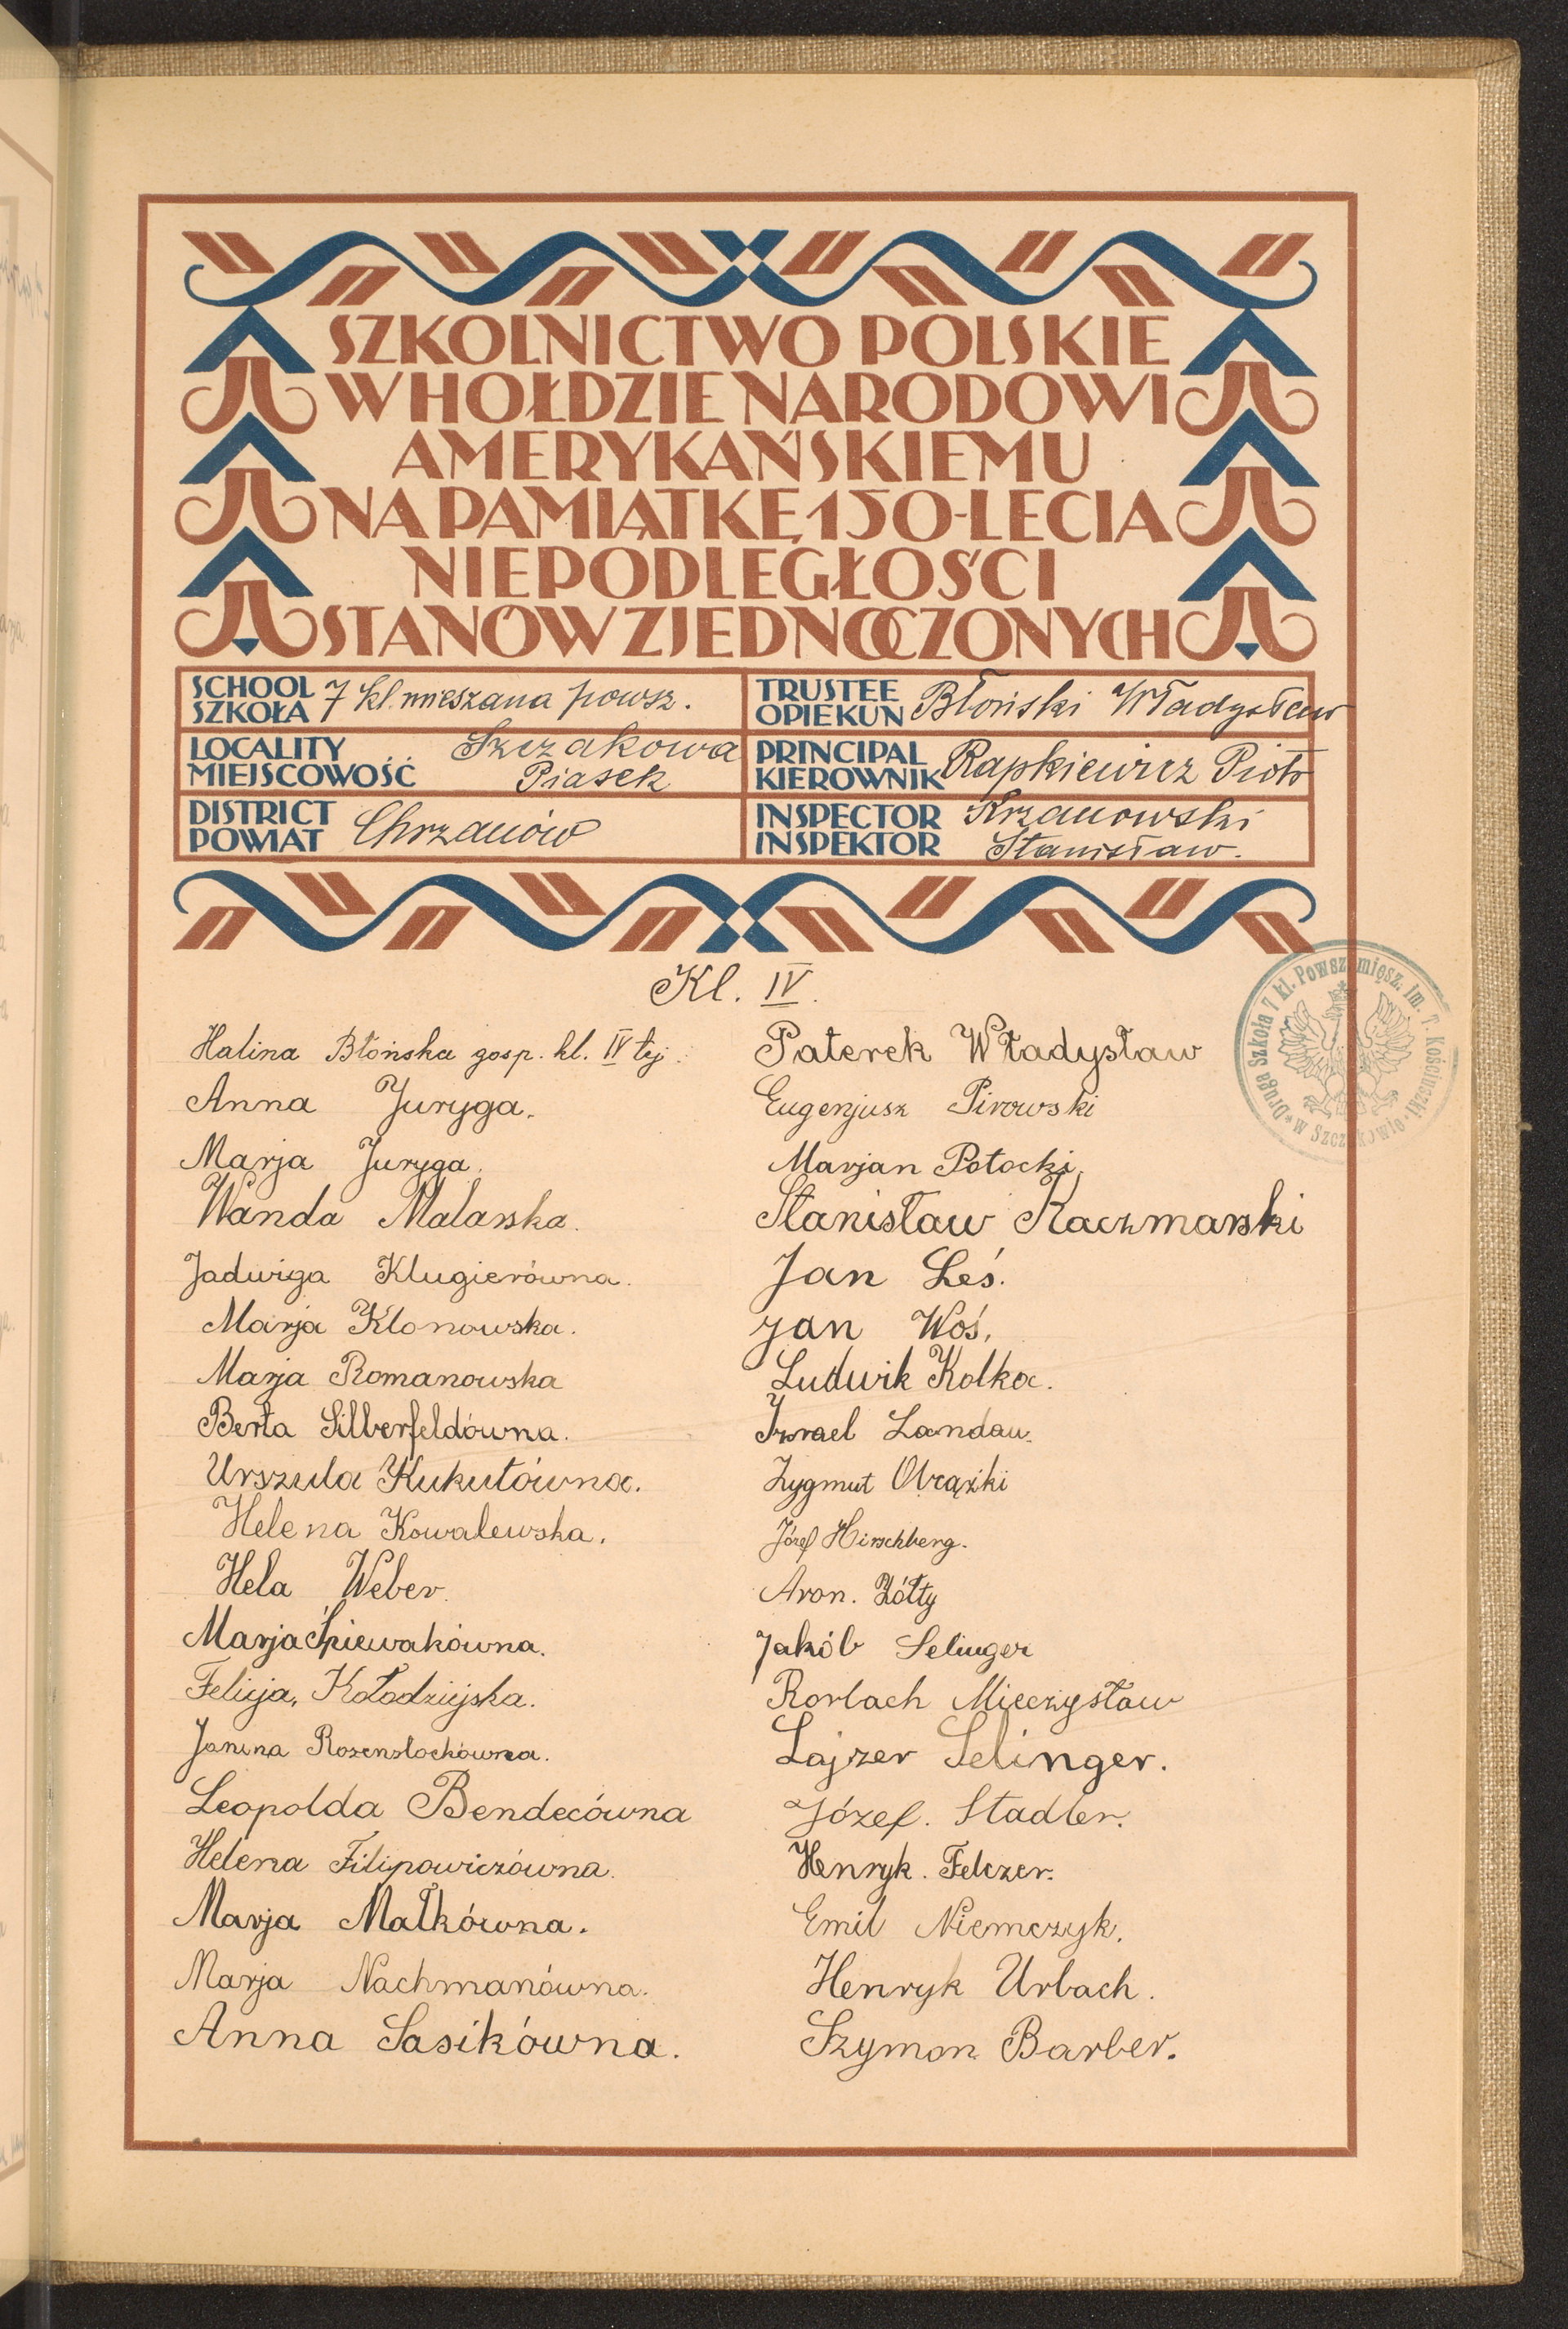 SZKOLNICTWO POLSKIE
W HOŁDZIE NARODOWI
AMERYKAŃSKIEMU
NA PAMIĄTKĘ 150-LECIA
NIEPODLEGŁOŚCI
STANÓW ZJEDNOCZONYCH
SCHOOL
SZKOŁA 7 kl. mieszana powsz.
TRUSTEE
OPIEKUN Błoński Władysław
LOCALITY
MIEJSCOWOŚĆ Szczakowa
Piasek
PRINCIPAL
KIEROWNIK Rapkiewicz Piotr
DISTRICT
POWIAT Chrzanów
INSPECTOR Krzanowski
INSPEKTOR Stanisław.
Kl. IV.
Druga Szkoła 7 kl. Powsz. mięsz. im. T. Kościuszki w Szczakowie
Halina Błońska gosp. kl. IV tej.
Anna Juryga.
Marja Juryga.
Wanda Malarska.
Jadwiga Klugierówna.
Marja Klonowska.
Marja Romanowska
Berta Silberfeldówna.
Urszula Kukułówna.
Helena Kowalewska.
Hela Weber.
Marja Śpiewakówna.
Felicja, Kołodziejska.
Janina Rosenstockówna.
Leopolda Bendecówna
Helena Filipowiczówna.
Marja Małkówna.
Marja Nachmanówna.
Anna Sasikówna.
Paterek Władysław
Eugenjusz Pirowski
Marjan Potocki,
Stanisław Kaczmarski
Jan Leś.
Jan Woś.
Ludwik Kolka.
Izrael Landau.
Zygmut
Józef Hirschberg.
Aron. Żółty
Jakób Selinger
Rorbach Mieczysław
Lajzer Selinger.
Józef. Stadler.
Henryk. Felczer.
Emil Niemczyk.
Henryk Urbach.
Szymon Barber.